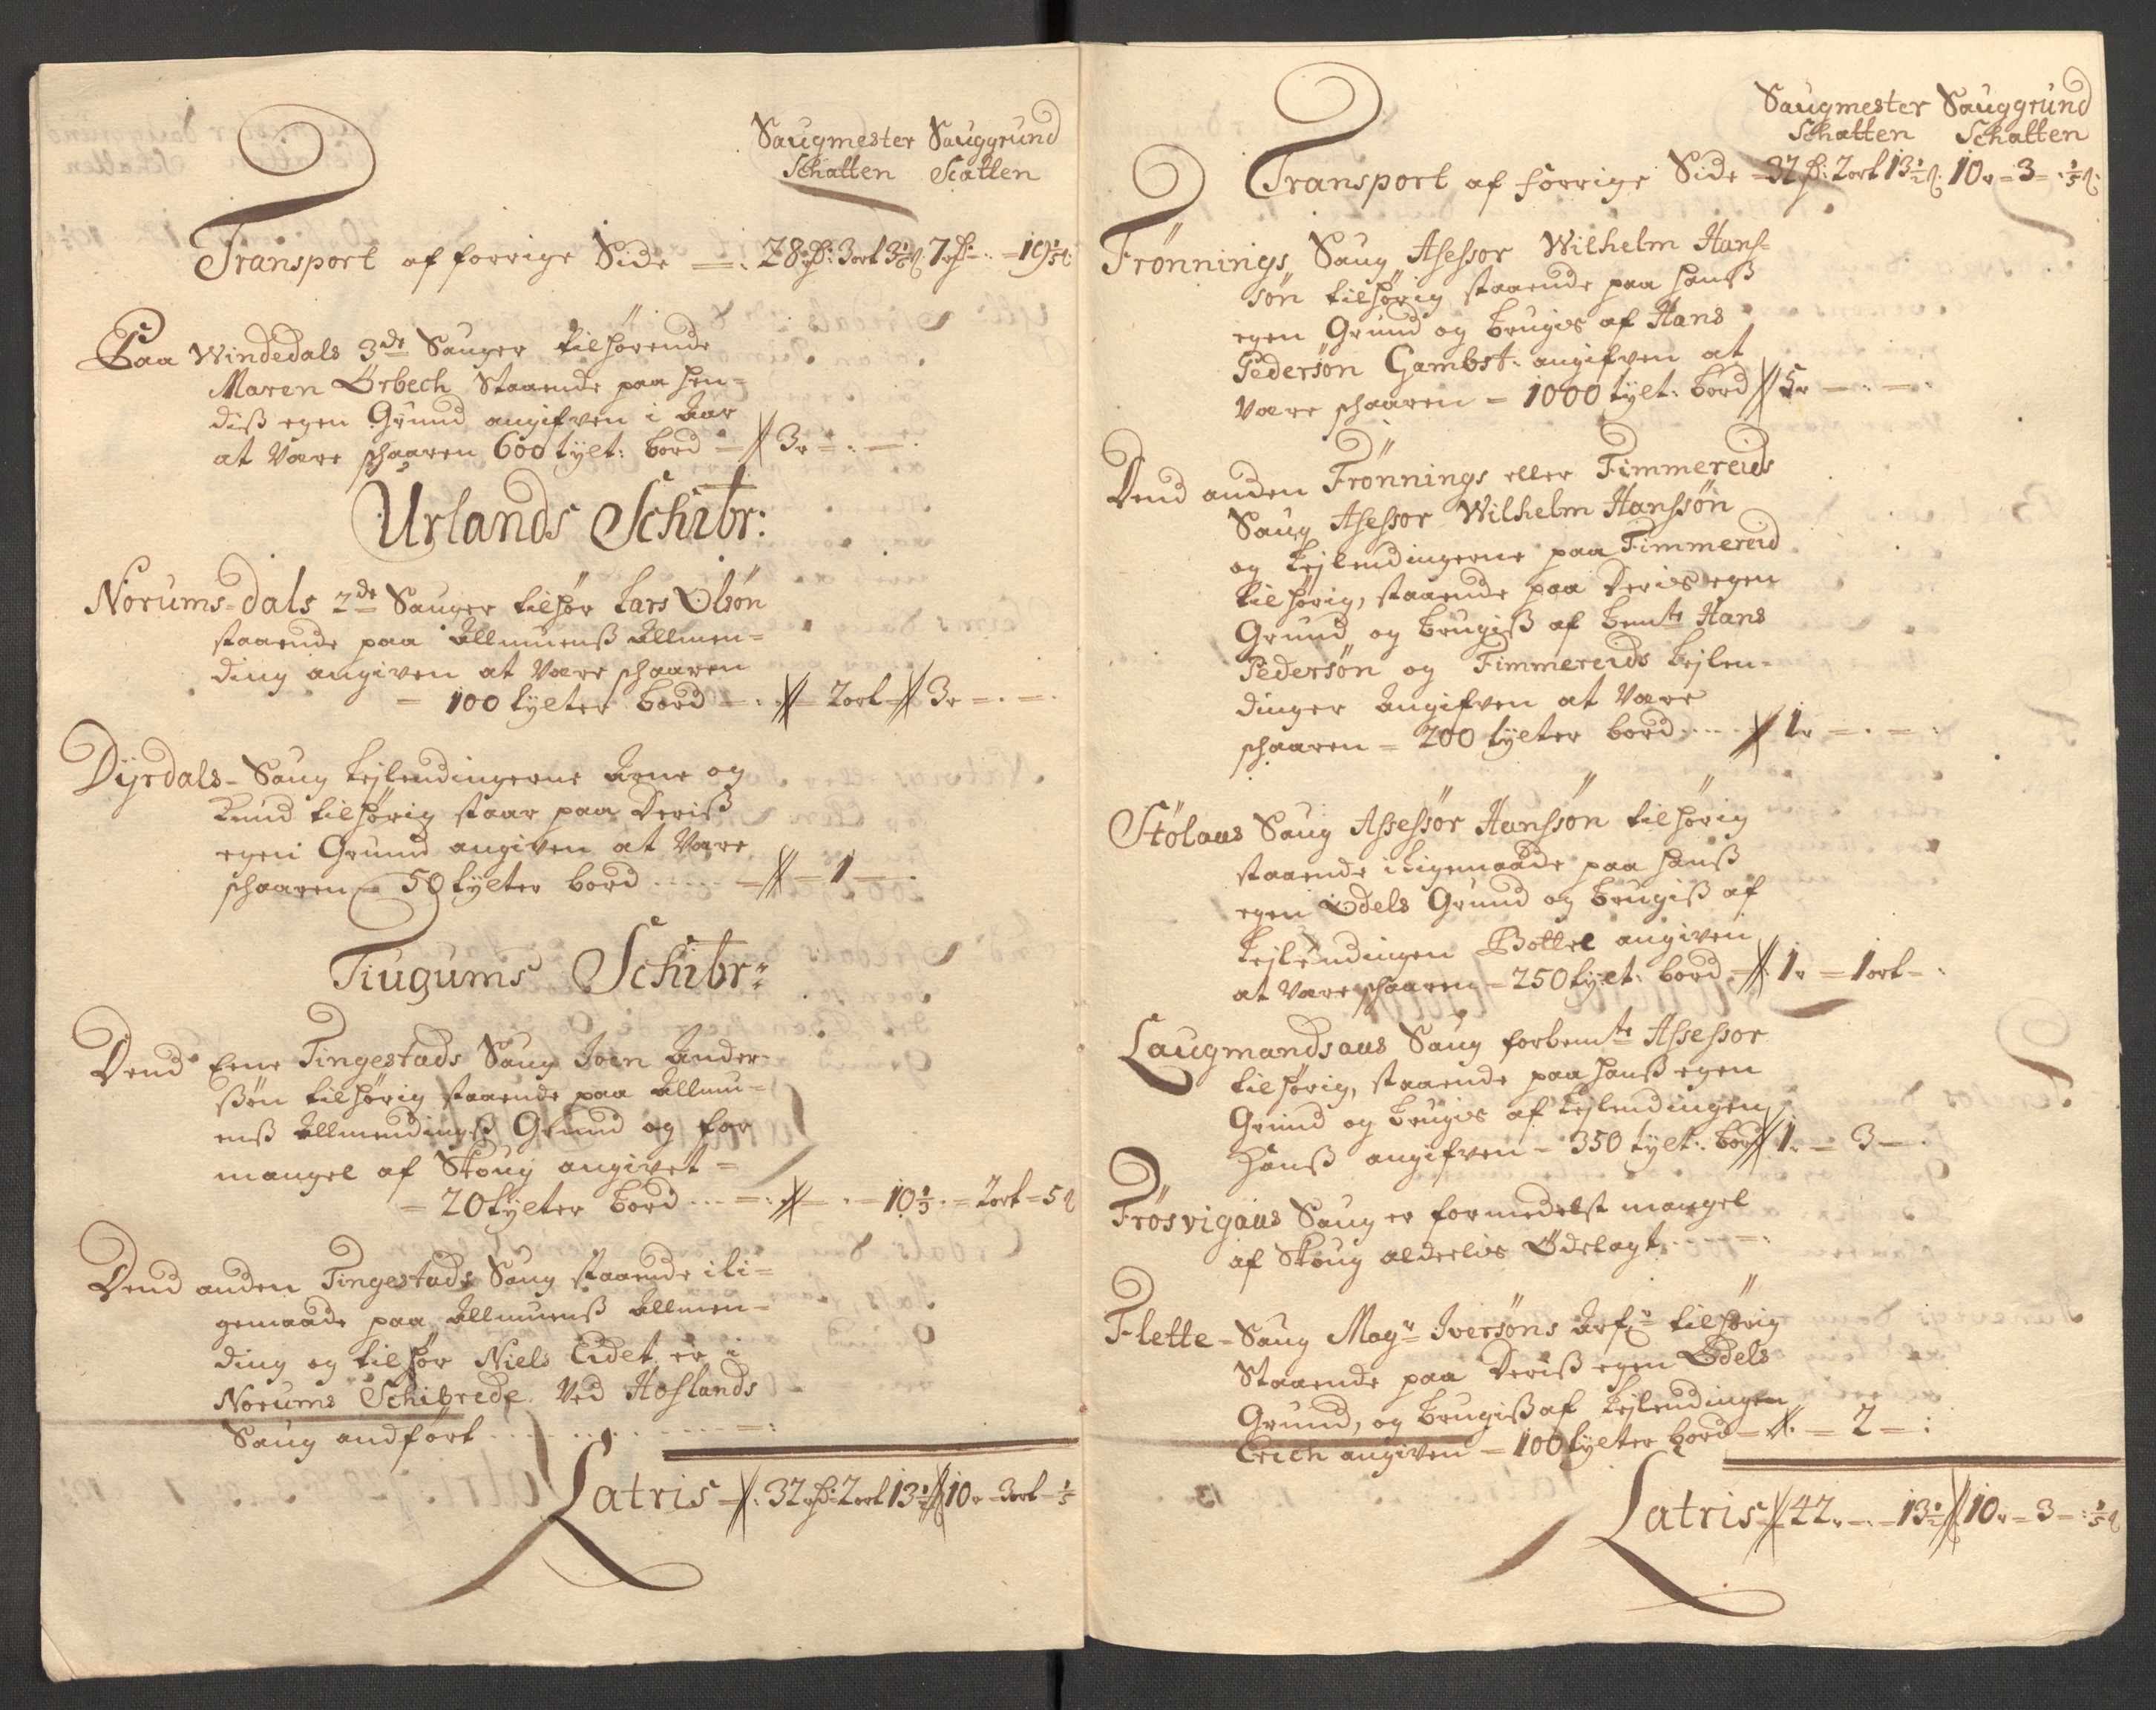 Saugmester Sauggrund
Schatten Scatten
Transport af forrige Side 28 rd: 3ort 3 7 rd 19
Paa Windedals 3de Sauger tilhørende
Maren Örbech Staaende paa hen-
diß egen Grund angifven i Aar
at Være schaaren 600 tylt: bord = 3r
Urlands Schibr:
Norums-dals 2de Sauger tilhør Lars Olsøn
staaende paa Allmuenß Allmen-
ding angiven at Være schaaren
= 100 tylter bord 2ort 3r
Dyrdals-Saug Leylendingerne Arne og
Knud tilhørig staar paa Deriß
egen Grund angiven at Være
schaaren = 50 tylter bord 1
Tiugums Schibr:
Dend Eene Tingestads Saug Joen Ander-
ßøn tilhørig staaende paa Allmu-
enß Allmendingß Grund og for
mangel af Skoug angivet =
= 20 tylter bord 10 2ort = 5
Dend anden Tingestads Saug staaende i li-
gemaade paa Allmuenß Allmen-
ding og tilhør Niels Eidet er i
Norums Schibrede Ved Hoflands
Saug andført
Latris 32 rd: 2ort 13½ 10r 3ort ⅕
Saugmester Sauggrund
Schatten Schatten
Transport af forrige Side 32 rd: 2ort 13½ 10r = 3 ⅕
Frønnings Saug Assessor Wilhelm Hans-
søn tilhørig staaende paa hanß
egen Grund og brugis af Hans
Pedersøn Gambst: angifven at
Være schaaren = 1000 tylt: bord 5r
Dend anden Frønnings eller Fimmereids
Saug Assessor Wilhelm Hanssøn
og Leylendingerne paa Fimmereid
tilhørig, staaende paa Deris egen
Grund og brugiß af bemte Hans
Pedersøn og Fimmereids Leylen-
dinger Angifven at Være
schaaren = 200 tylter bord 1r
Stølaas Saug Assessor Hanssøn tilhørig
staaende i ligemaade paa hanß
egen Odels Grund og brugiß af
Leylendingen Bottel angiven
at Være schaaren = 250 tylt: bord 1r = 1ort
Laugmandsaas Saug forbemte Assessor
tilhørig, staaende paa hanß egen
Grund og brugis af Leylendingen
Hanß angifven = 350 tylt: bord 1r = 3
Frøsvigaas Saug er formedelst mangel
af Skoug alderlis Ødelagt
Flette-Saug Magr Iversøns Arfr tilhørig
Staaende paa Deriß egen Odels
Grund, og brugiß af Leylendingen
Erich angiven = 100 tylter bord 2
Latris 42r 13½ 10r = 3 ⅕